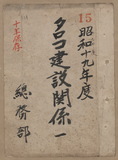 15
昭和十九年度
タロコ建設関係一
總務部